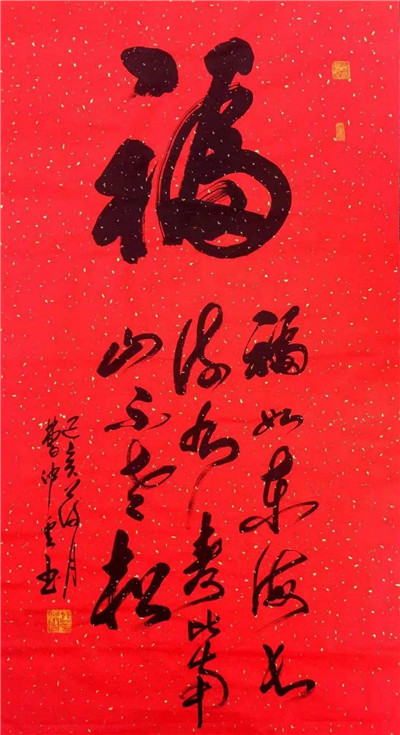 福
福如东海长
流水寿比南
山不老松
己亥
月
曹冲云书